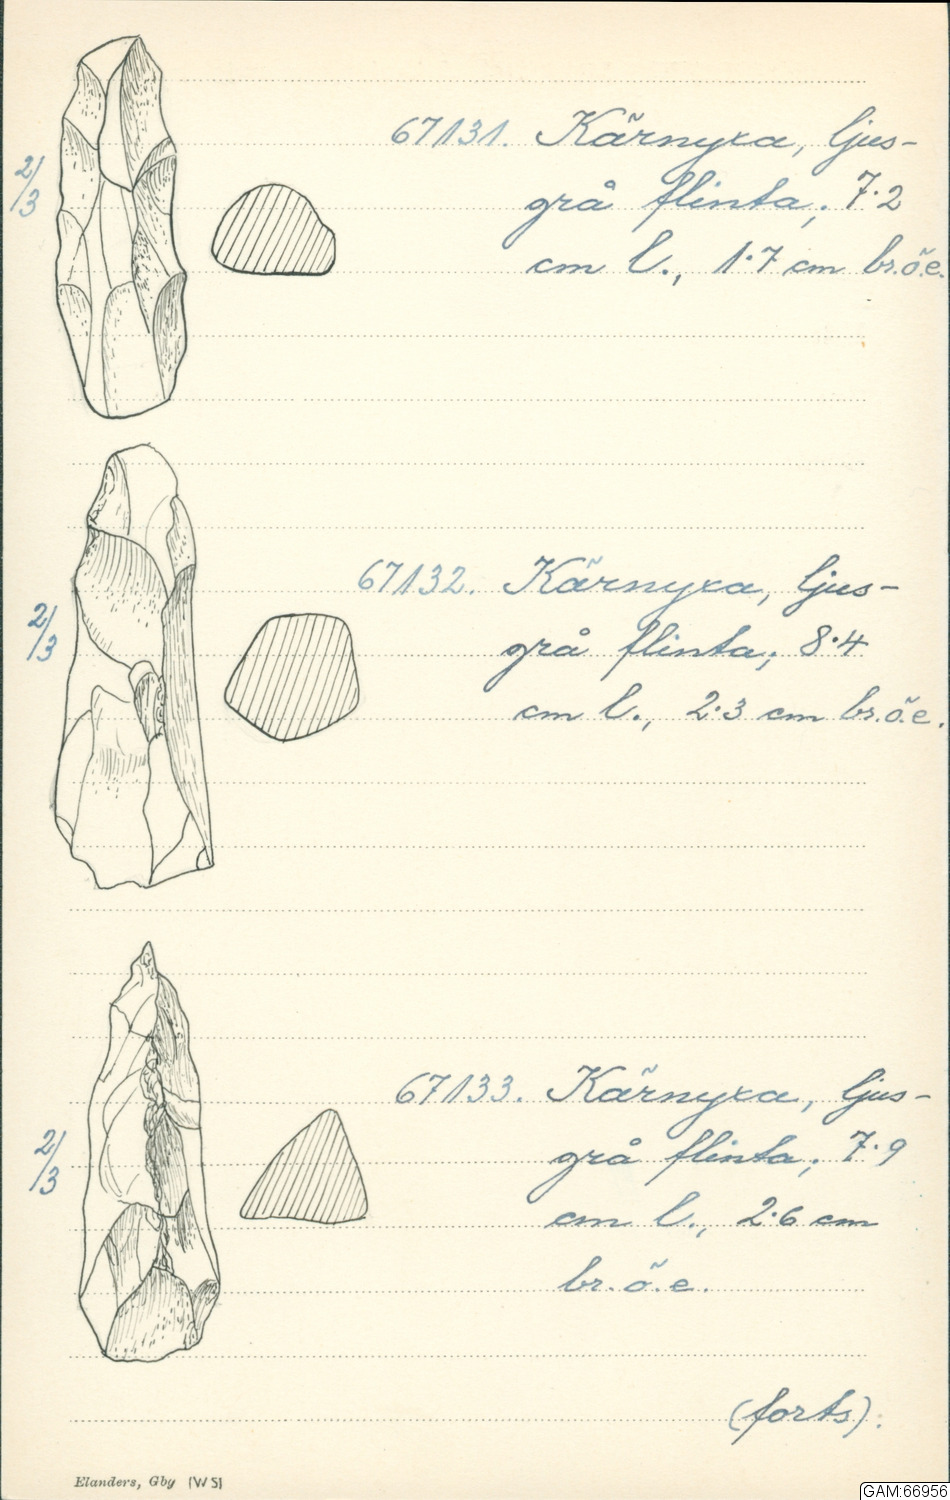 67131. Kärnyxa, ljus-
2/3
grå flinta; 7·2
cm l., 1·7 cm br.ö.e.
67132. Kärnyxa, ljus-
2/3
grå flinta; 8·4
cm l., 2·3 cm br.ö.e.
67133. Kärnyxa, ljus-
2/3
grå flinta; 7·9
cm l., 2·6 cm
br.ö.e.
(forts).
Elanders, Gby (WS)
GAM:66956